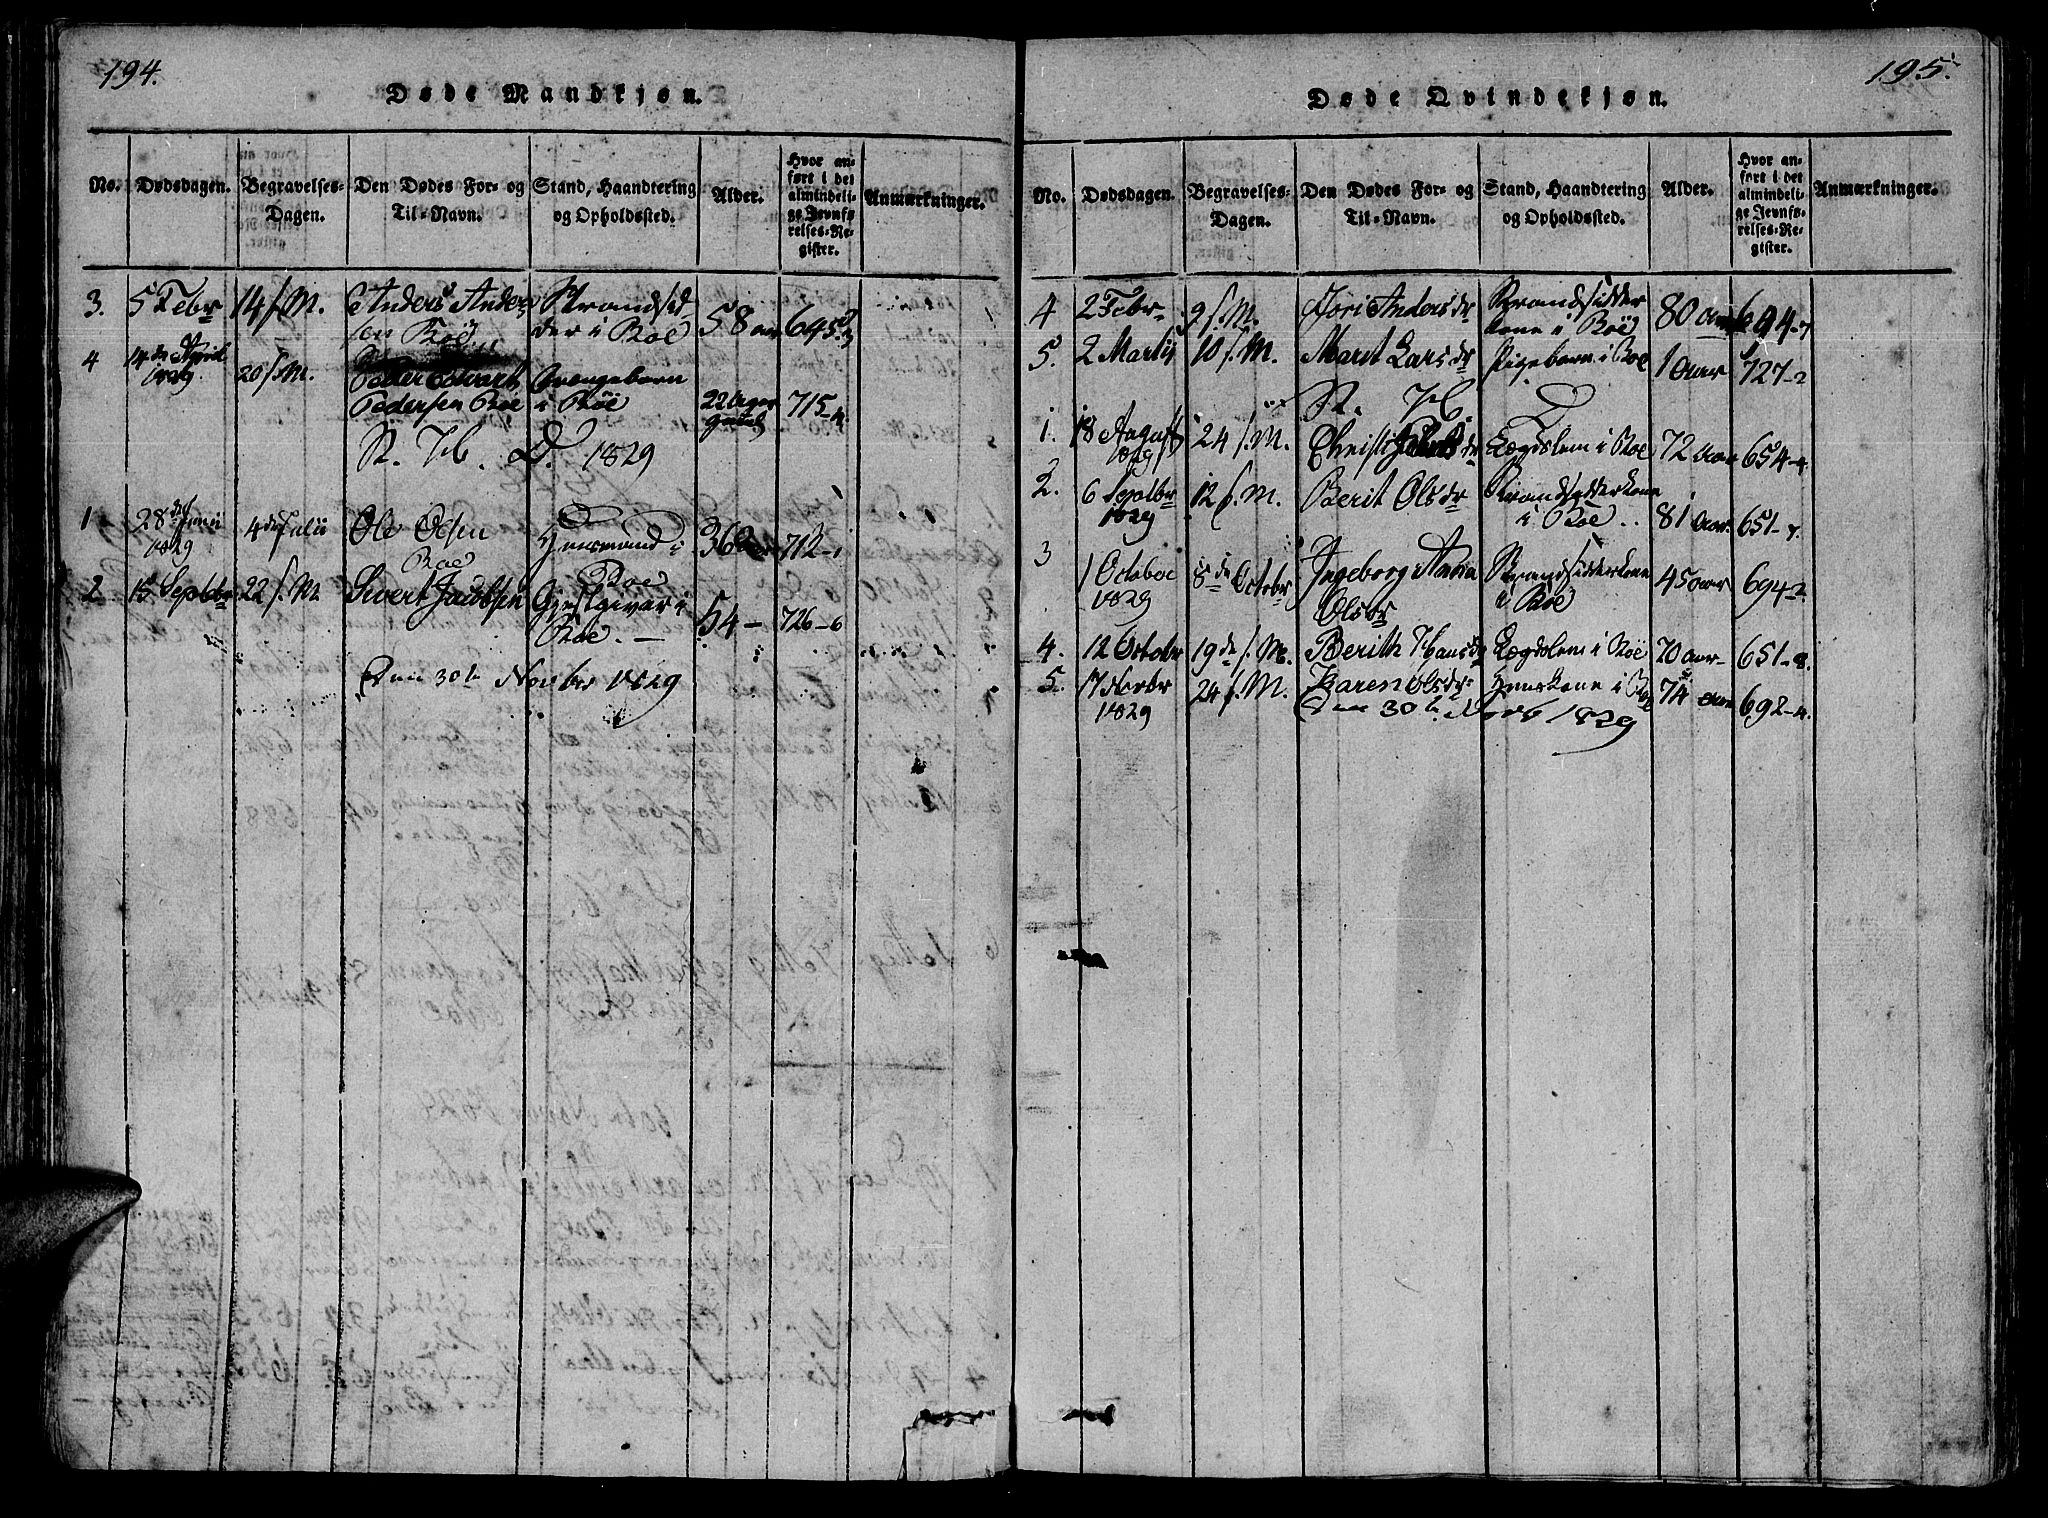 194.
Døde Mandkjøn.
No. Dødsdagen. Begravelses-Dagen. Den Dødes For- og Til-Navn. Stand, Haandtering og Opholdssted. Alder. Hvor anført i det almindelige Jevnførelses-Register. Anmærkninger.
3. 5 Febr 14 s. M. Anders Anders Strandsid 58 aar 645-3
sen Boe der i Boe
4 14de April 20 s. M. Peder Sivert Drengebarn 22 Uger 715-4
1829 Pedersen Boe i Böe gamel
St. H. D. 1829
1 28de Junii 4de Julii Ole Olsen Huusmand i 36 aar 712-1
1829 Boe Boe
2 15 Septbr 22 s. M. Sivert Jacobsen Gjestgiver i 54 - 726-6
Boe. -
Den 30te Novber 1829
195.
Døde Qvindekjøn.
No. Dødsdagen. Begravelses-Dagen. Den Dødes For- og Til-Navn. Stand, Haandtering og Opholdssted. Alder. Hvor anført i det almindelige Jevnførelses-Register. Anmærkninger.
4 2 Febr 9 s. M. Jöri Andersdr Strandsidder 80 aar 694-7
kone i Böe
5. 2 Martii 10 s. M. Marit Larsdr Pigebarn i Boe 1 aar 727-2
St. H. D
1. 18 August 24 s. M. Christi Lægdslem i Boe 72 aar 654-4
1829
2. 6 Septbr 12 s. M. Berit Olsdr Strandsidderkone 81 aar 651-7.
1829 i Boe
3 1 October 8de Octobr Ingeborg Anna Strandsidderkone 45 aar 694-2
1829 Olsdr i Boe
4. 12 October 19de s. M. Berith Hansdr Lægdslem i Böe 70 aar 651-8.
5. 17 Novbr 24 s. M. Karen Olsdr Huuskone i Boe 74 aar 692-4.
1829 Den 30te Novb 1829